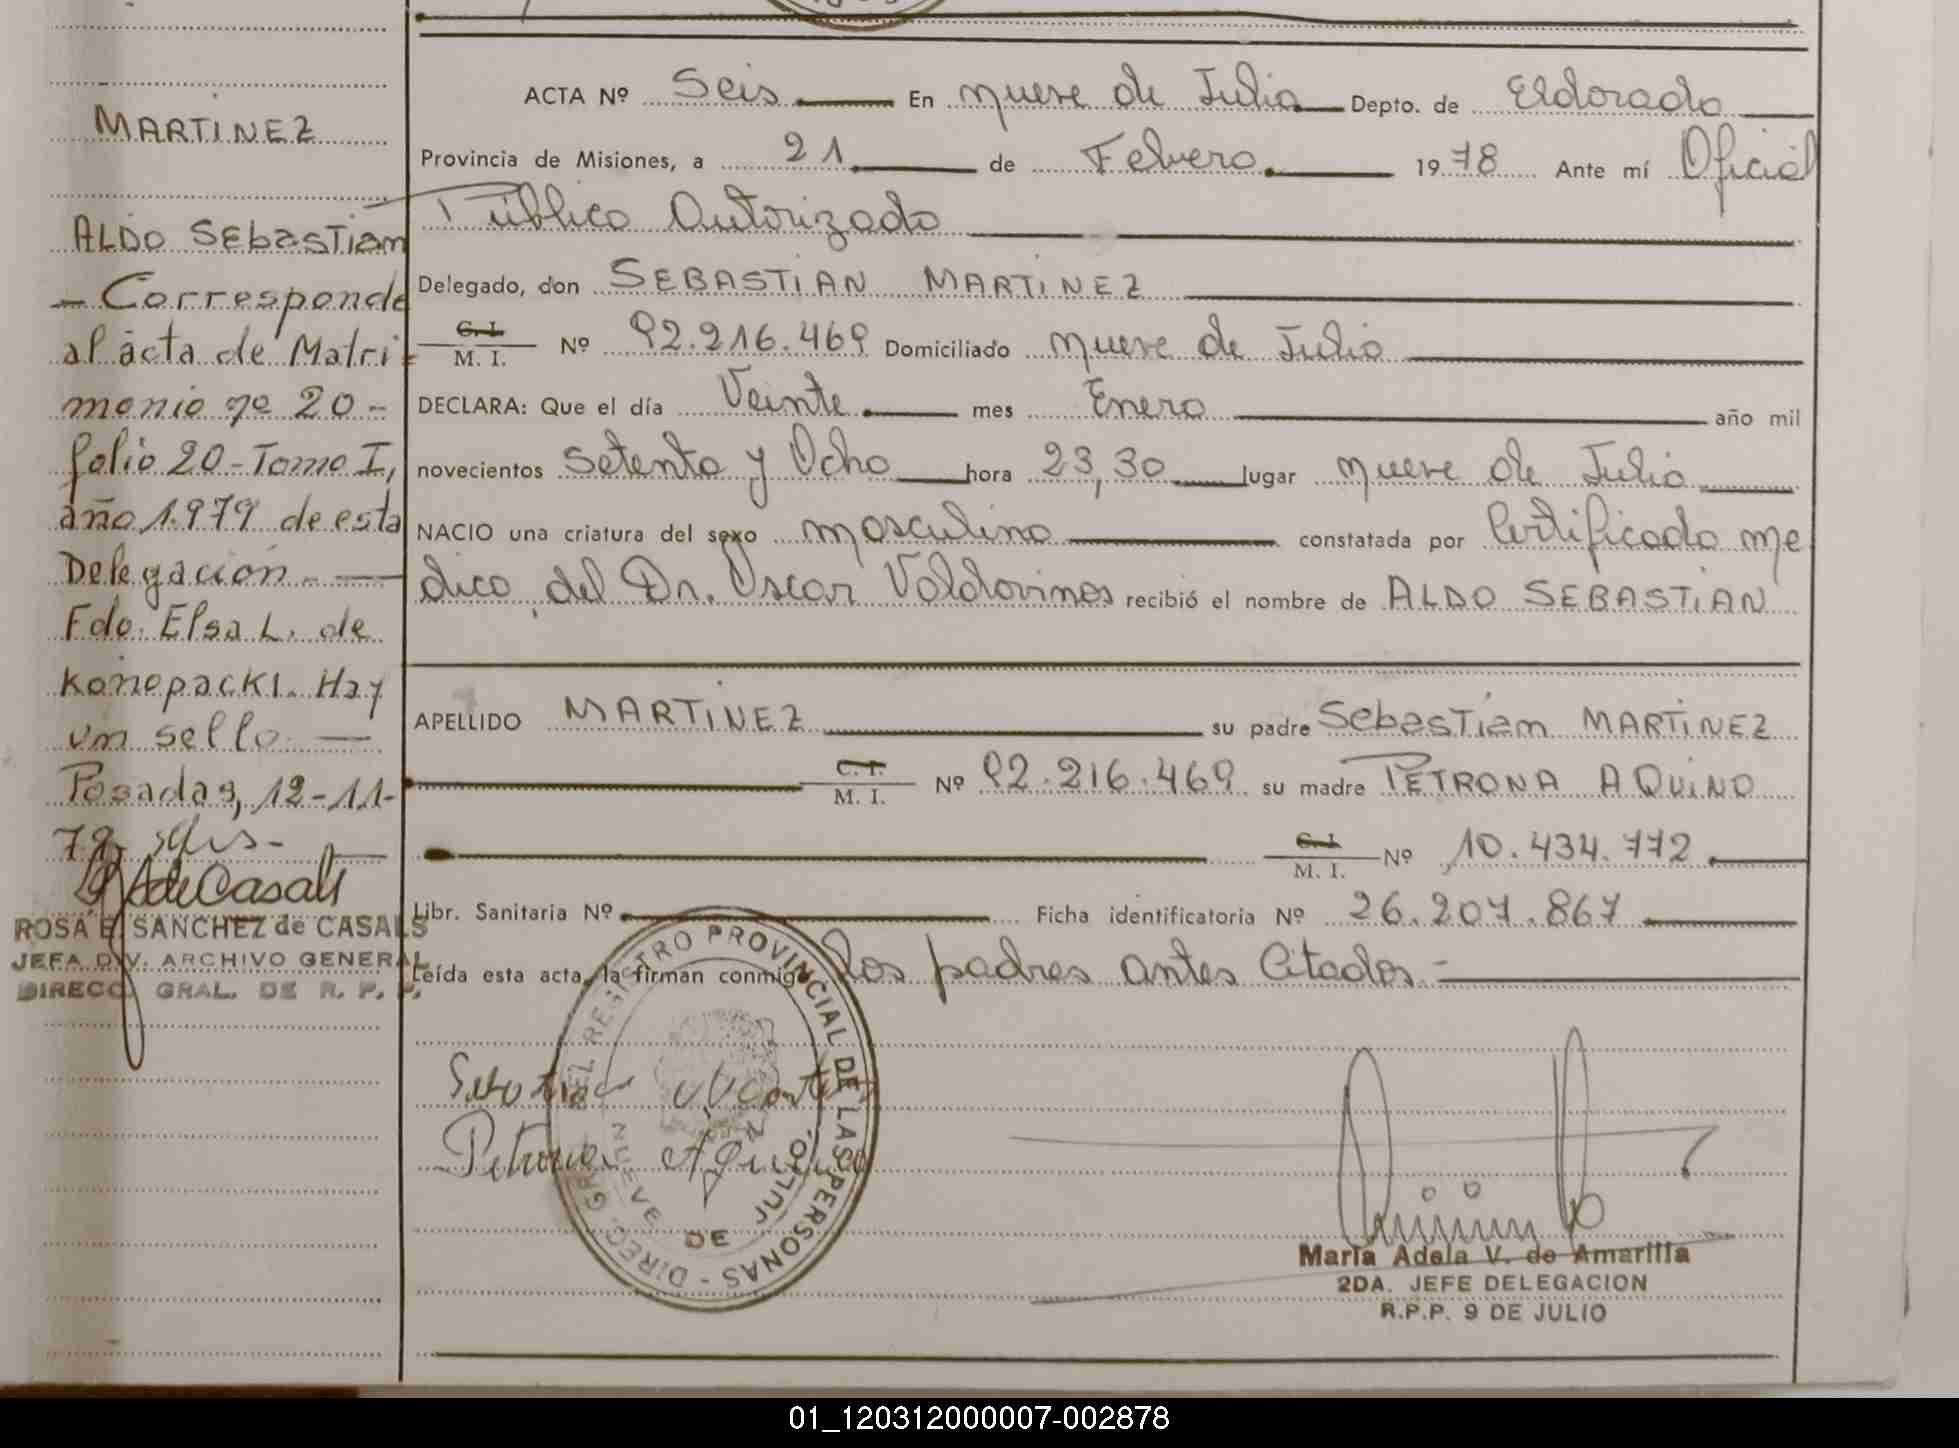 MARTINEZ
ALDO SEbasTian
- Corresponde
al acta de Matri-
monio nº 20-
folio 20-Tomo I,
año 1.979 de esta
Delegación.-
Fdo. Elsa L. de
Konopacki. Hay
un sello
Posadas, 12-11-
79
ROSA E. SANCHEZ de CASALS
JEFA DIV. ARCHIVO GENERAL
DIRECC. GRAL. DE R. P. P.
ACTA Nº Seis En nueve de Julio Depto. de Eldorado
Provincia de Misiones, a 21 de Febrero 1978 Ante mí Oficial
Público Autorizado
Delegado, don SEBASTIAN MARTINEZ
C. I.
M. I. Nº 92.216.469 Domiciliado nueve de Julio
DECLARA: Que el día Veinte mes Enero año mil
novecientos Setenta y Ocho hora 23,30 lugar nueve de Julio
NACIO una criatura del sexo masculino constatada por Certificado me
dico del Dr. Oscar Valdovinos recibió el nombre de ALDO SEBASTIAN
APELLIDO MARTINEZ su padre SebasTian MARTINEZ
C. I.
M. I. Nº 92.216.469 su madre PETRONA AQUINO
C. I.
M. I. Nº 10.434.772
Libr. Sanitaria Nº Ficha identificatoria Nº 26.207.867
Leída esta acta, la firman conmigo los padres antes Citados.-
Petrona Aquino
DIREC. GRAL. DEL REGISTRO PROVINCIAL DE LAS PERSONAS -
NUEVE DE JULIO
María Adela V. de Amarilla
2DA. JEFE DELEGACION
R.P.P. 9 DE JULIO
01_120312000007-002878